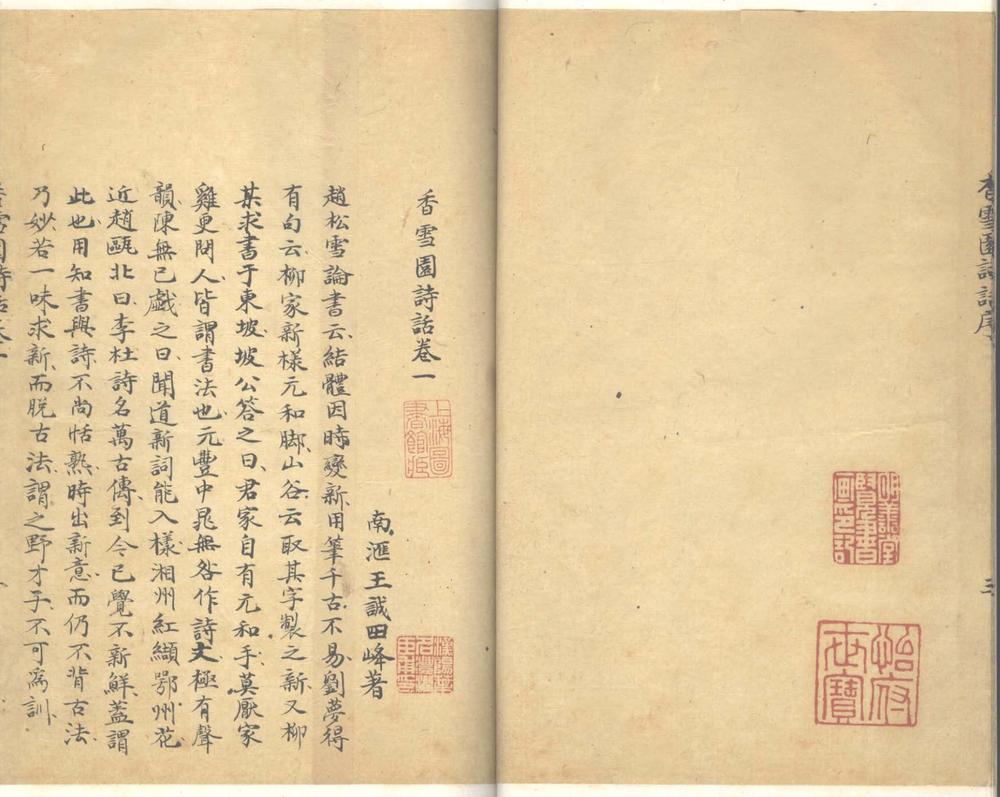 香雪園詩話序
三
明善堂覽書畫印記
怡府世寶
香雪園詩話卷一
上海圖書館藏
南滙王誠田峰著
趙松雪論書云結體因時變新用筆千古不易劉夢得
有句云柳家新樣元和脚山谷云取其字製之新又柳
某求書于東坡坡公答之曰君家自有元和手莫厭家
雞更問人皆謂書法也元豐中晁無咎作詩文極有聲
韻陳無已戲之曰聞道新詞能入樣湘州紅纈鄂州花
近趙甌北曰李杜詩名萬古傳到今已覺不新鮮蓋謂
此也用知書與詩不尚恬熟時出新意而仍不背古法
乃妙若一味求新而脫古法謂之野才子不可為訓
香雪園詩話卷一